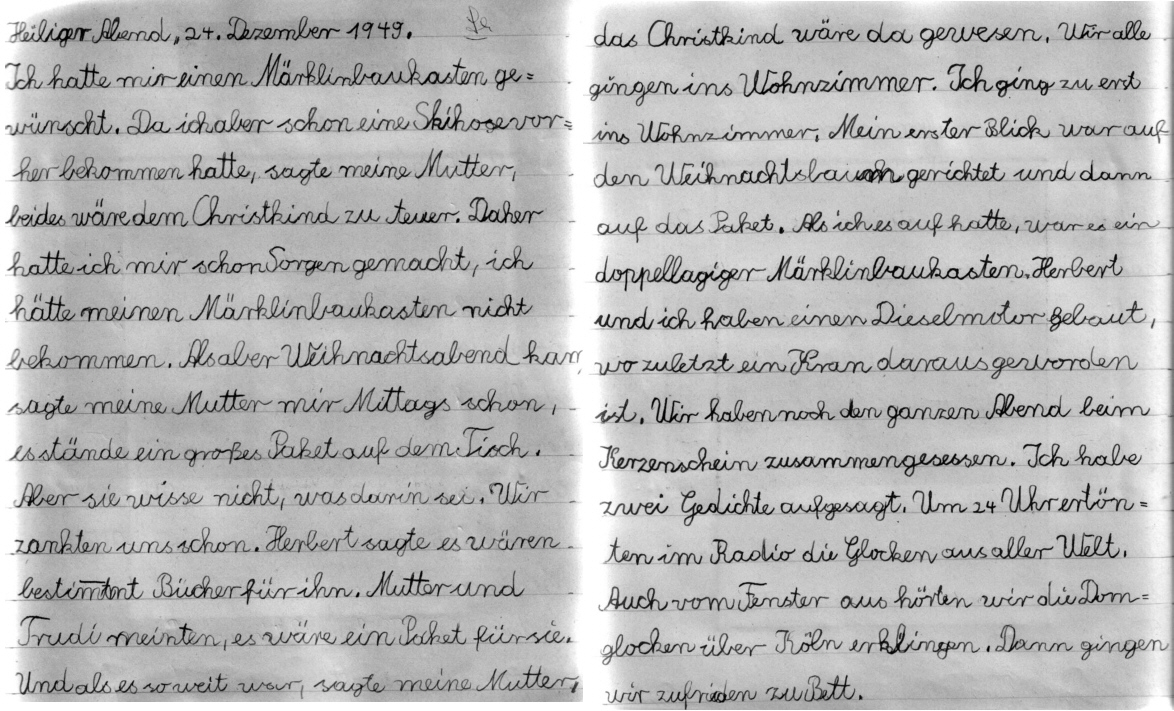 Heiliger Abend, 24. Dezember 1949.
Ich hatte mir einen Märklinbaukasten ge=
wünscht. Da ich aber schon eine Skihose vor=
her bekommen hatte, sagte meine Mutter,
beides wäre dem Christkind zu teuer. Daher
hatte ich mir schon Sorgen gemacht, ich
hätte meinen Märklinbaukasten nicht
bekommen. Als aber Weihnachtsabend kam
sagte meine Mutter mir Mittags schon,
es stände ein großes Paket auf dem Tisch.
Aber sie wisse nicht, was darin sei. Wir
zankten uns schon. Herbert sagte es wären
bestimmt Bücher für ihn. Mutter und
Trudi meinten, es wäre ein Paket für sie.
Und als es so weit war, sagte meine Mutter,
das Christkind wäre da gewesen. Wir alle
gingen ins Wohnzimmer. Ich ging zu erst
ins Wohnzimmer. Mein erster Blick war auf
den Weihnachtsbaum gerichtet und dann
auf das Paket. Als ich es auf hatte, war es ein
doppellagiger Märklinbaukasten. Herbert
und ich haben einen Dieselmotor gebaut,
wo zuletzt ein Kran daraus geworden
ist. Wir haben noch den ganzen Abend beim
Kerzenschein zusammengesessen. Ich habe
zwei Gedichte aufgesagt. Um 24 Uhr ertön=
ten im Radio die Glocken aus aller Welt.
Auch vom Fenster aus hörten wir die Dom=
glocken über Köln erklingen. Dann gingen
wir zufrieden zu Bett.